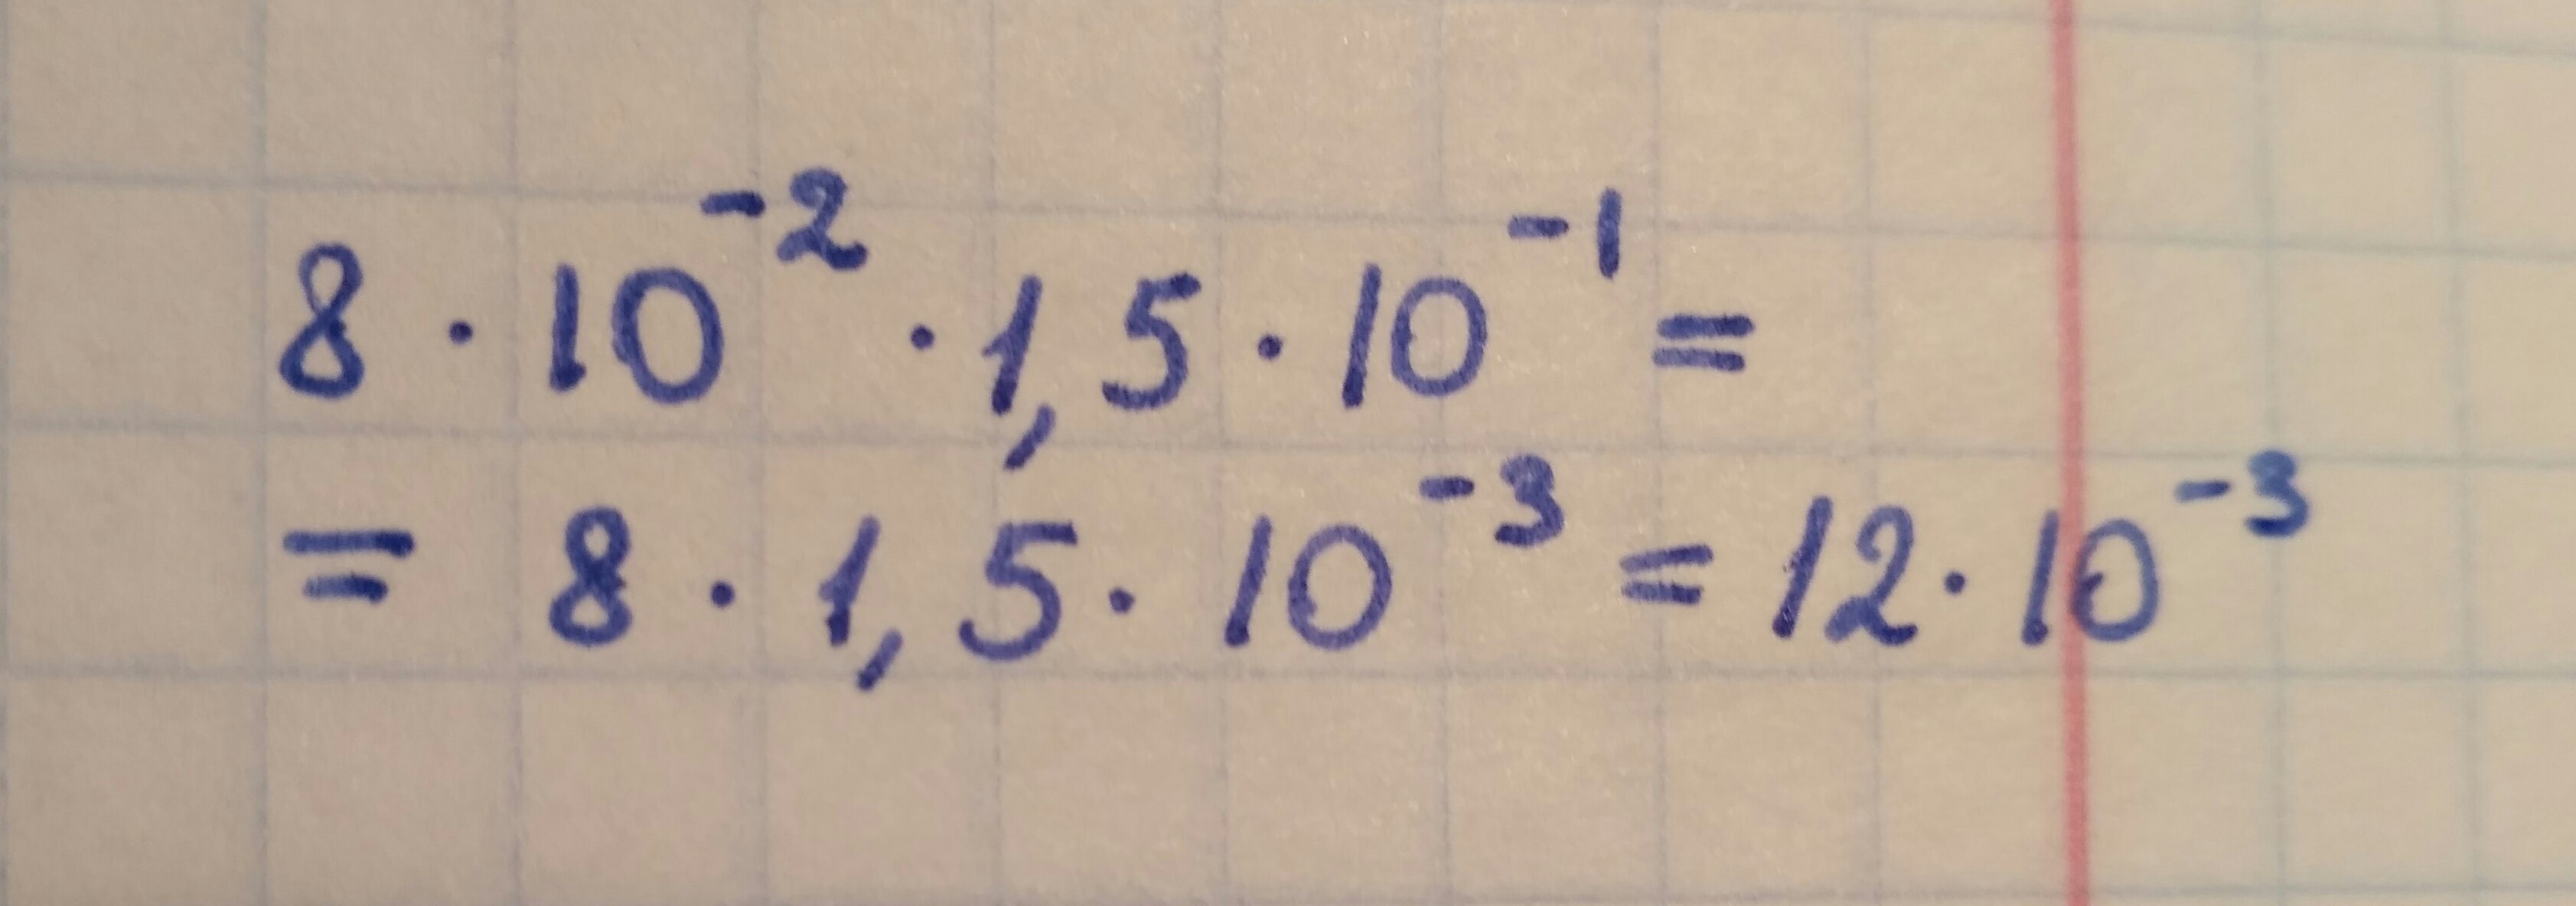 8 · 10⁻² · 1,5 · 10⁻¹ =
= 8 · 1,5 · 10⁻³ = 12 · 10⁻³